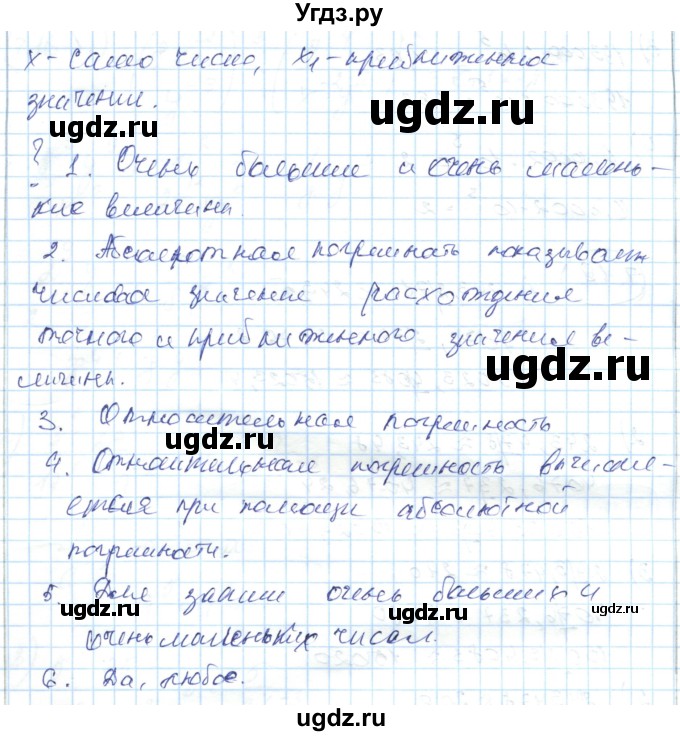 Угдз.ру
x - само число, x₁ - приближенное
значении.
? 1. Очень большие и очень малень-
кие величины.
2. Абсолютная погрешность показывает
числовое значение расхождения
точного и приближенного значения ве-
личины.
3. Относительная погрешность
4. Относительная погрешность вычисля-
ется при помощи абсолютной
погрешности.
5 Для записи очень больших и
очень маленьких чисел.
6. Да, любое.
ugdz.ru
ugdz.ru
ugdz.ru
ugdz.ru
ugdz.ru
ugdz.ru
ugdz.ru
ugdz.ru
ugdz.ru
ugdz.ru
ugdz.ru